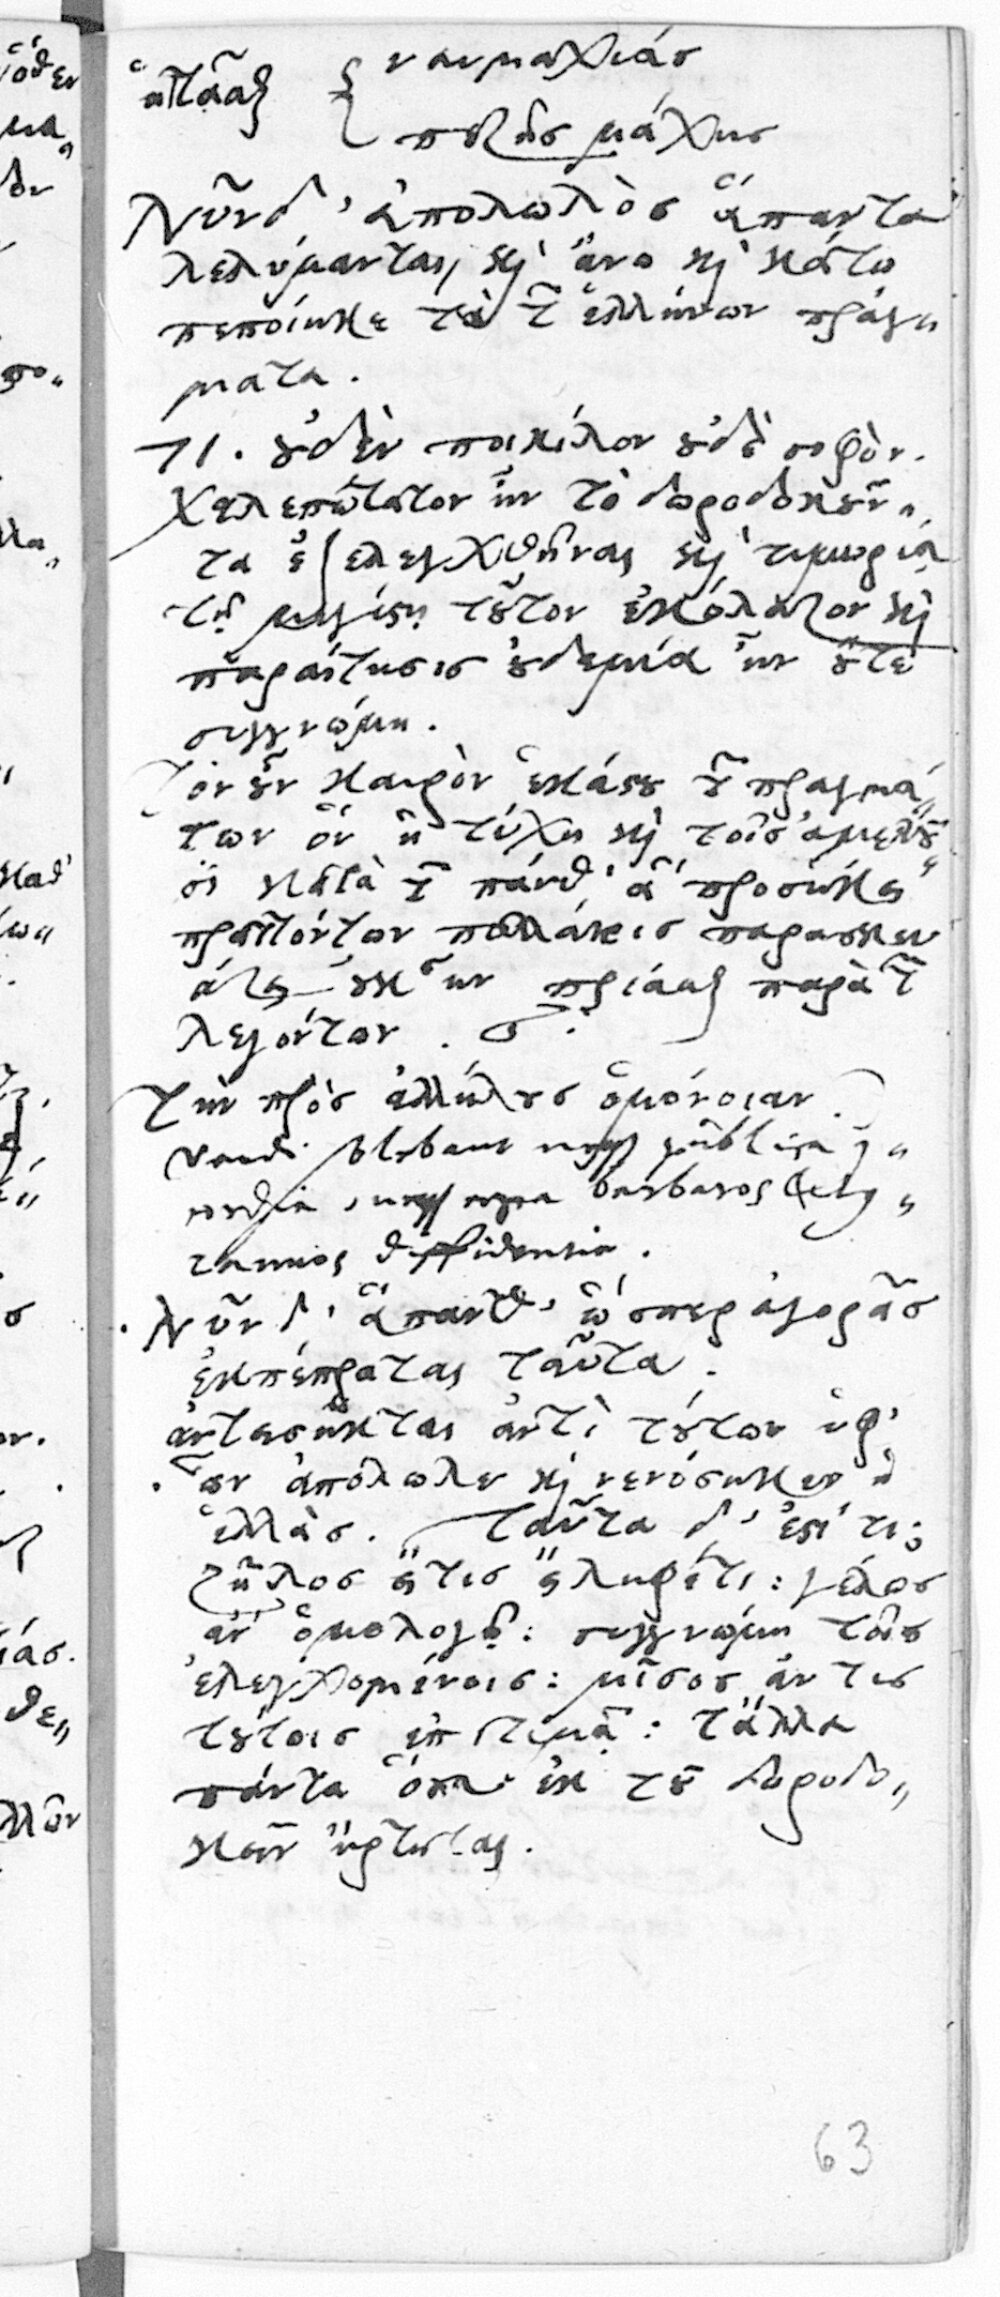 ναυμαχίας
ἡττᾶσθαι {
πεζῆς μάχης
Νῦν δ' ἀπολωλὸς ἅπαντα
λελύμανται, καὶ ἄνω καὶ κάτω
πεποίηκε τὰ τῶν ἑλλήνων πράγ„
ματα.
71. οὐδὲν ποικίλον οὐδὲ σοφὸν.
χαλεπώτατον ἦν τὸ δωροδοκοῦν„
τα ἐξελεγχθῆναι καὶ τιμωρίᾳ
τῇ μεγίστῃ τοῦτον ἐκόλαζον καὶ
παραίτησις οὐδεμία ἦν οὔτε
συγγνώμη.
Τὸν οὖν καιρὸν ἑκάστου τῶν πραγμά„
των ὃν ἡ τύχη καὶ τοῖς ἀμελοῦ„
σι κατὰ τῶν πάνθ' ἃ προσήκει
πραττόντων πολλάκις παρασκευ
άζει οὐκ ἦν πρίασθαι παρὰ τῶν
λεγόντων.
Τὴν πρὸς ἀλλήλους ὁμόνοιαν
publica
barbaros
diffidentia.
Νῦν δ' ἅπανθ' ὥσπερ ἀγορᾶς
ἐκπέπραται ταῦτα.
ἀντεισῆκται ἀντὶ τούτων ὑφ'
ὧν ἀπόλωλεν καὶ νενόσηκεν ἡ
ἑλλὰς. ταῦτα δ' ἐστί τι;
ζῆλος εἴ τις εἴληφέ τι: γέλως
ἂν ὁμολογῇ: συγγνώμη τοῖς
ἐλεγχομένοις: μῖσος ἄν τις
τούτοις ἐπιτιμᾷ: τἄλλα
πάντα ὅσα ἐκ τοῦ δωροδο„
κεῖν ἤρτηται.
63